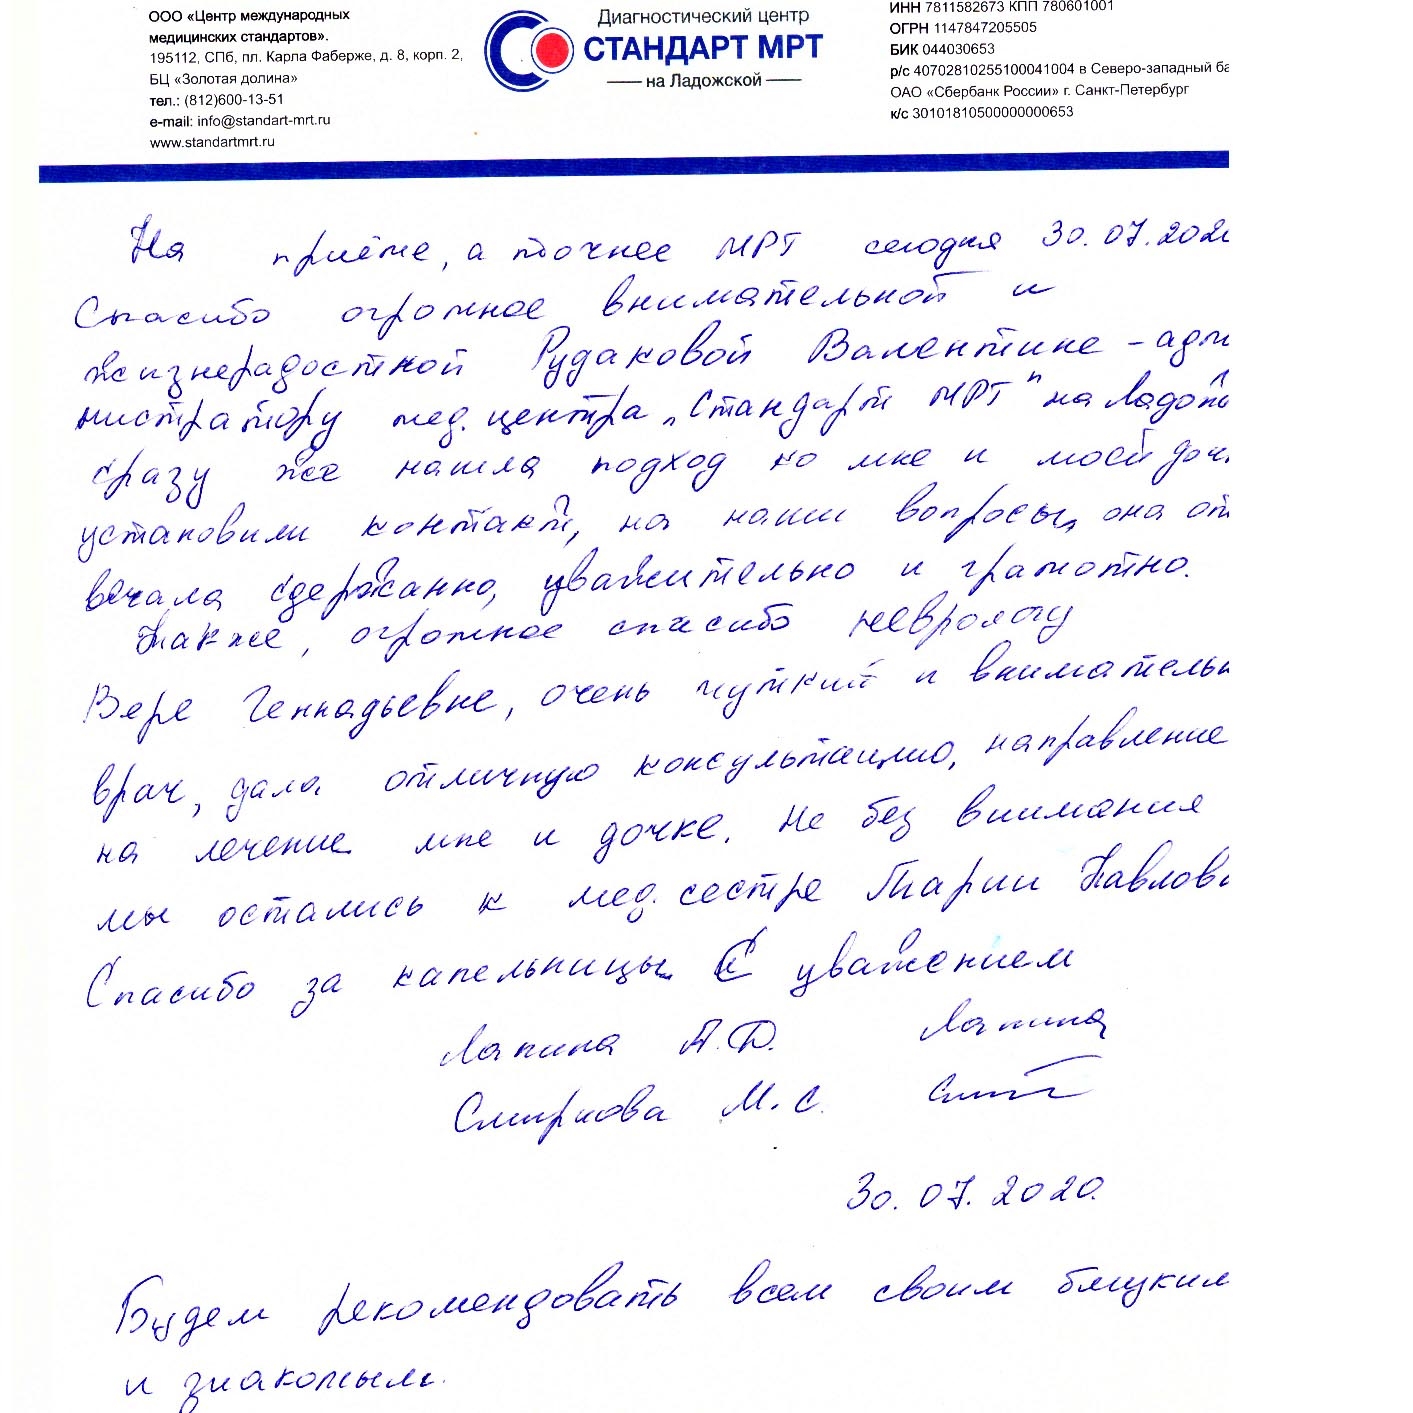 ООО «Центр международных
медицинских стандартов».
195112, СПб, пл. Карла Фаберже, д. 8, корп. 2,
БЦ «Золотая долина»
тел.: (812)600-13-51
e-mail: info@standart-mrt.ru
www.standartmrt.ru
Диагностический центр
СТАНДАРТ МРТ
на Ладожской
ИНН 7811582673 КПП 780601001
ОГРН 1147847205505
БИК 044030653
р/с 40702810255100041004 в Северо-западный ба
ОАО «Сбербанк России» г. Санкт-Петербург
к/с 30101810500000000653
На приёме, а точнее МРТ сегодня 30.07.202
Спасибо огромное внимательной и
жизнерадостной Рудаковой Валентине - адми
нистратору мед. центра „Стандарт МРТ" на Ладо
сразу же нашла подход ко мне и моей доч
установили контакт, на наши вопросы, она от
вечала сдержанно, уважительно и грамотно.
Также, огромное спасибо неврологу
Вере Геннадьевне, очень чуткий и внимательн
врач, дала отличную консультацию, направление
на лечение мне и дочке. Не без внимания
мы остались к мед. сестре Марии Павлов
Спасибо за капельницы. С уважением
Лапина А.Д. Лапина
Смирнова М.С.
30.07.2020.
Будем рекомендовать всем своим близким
и знакомым.